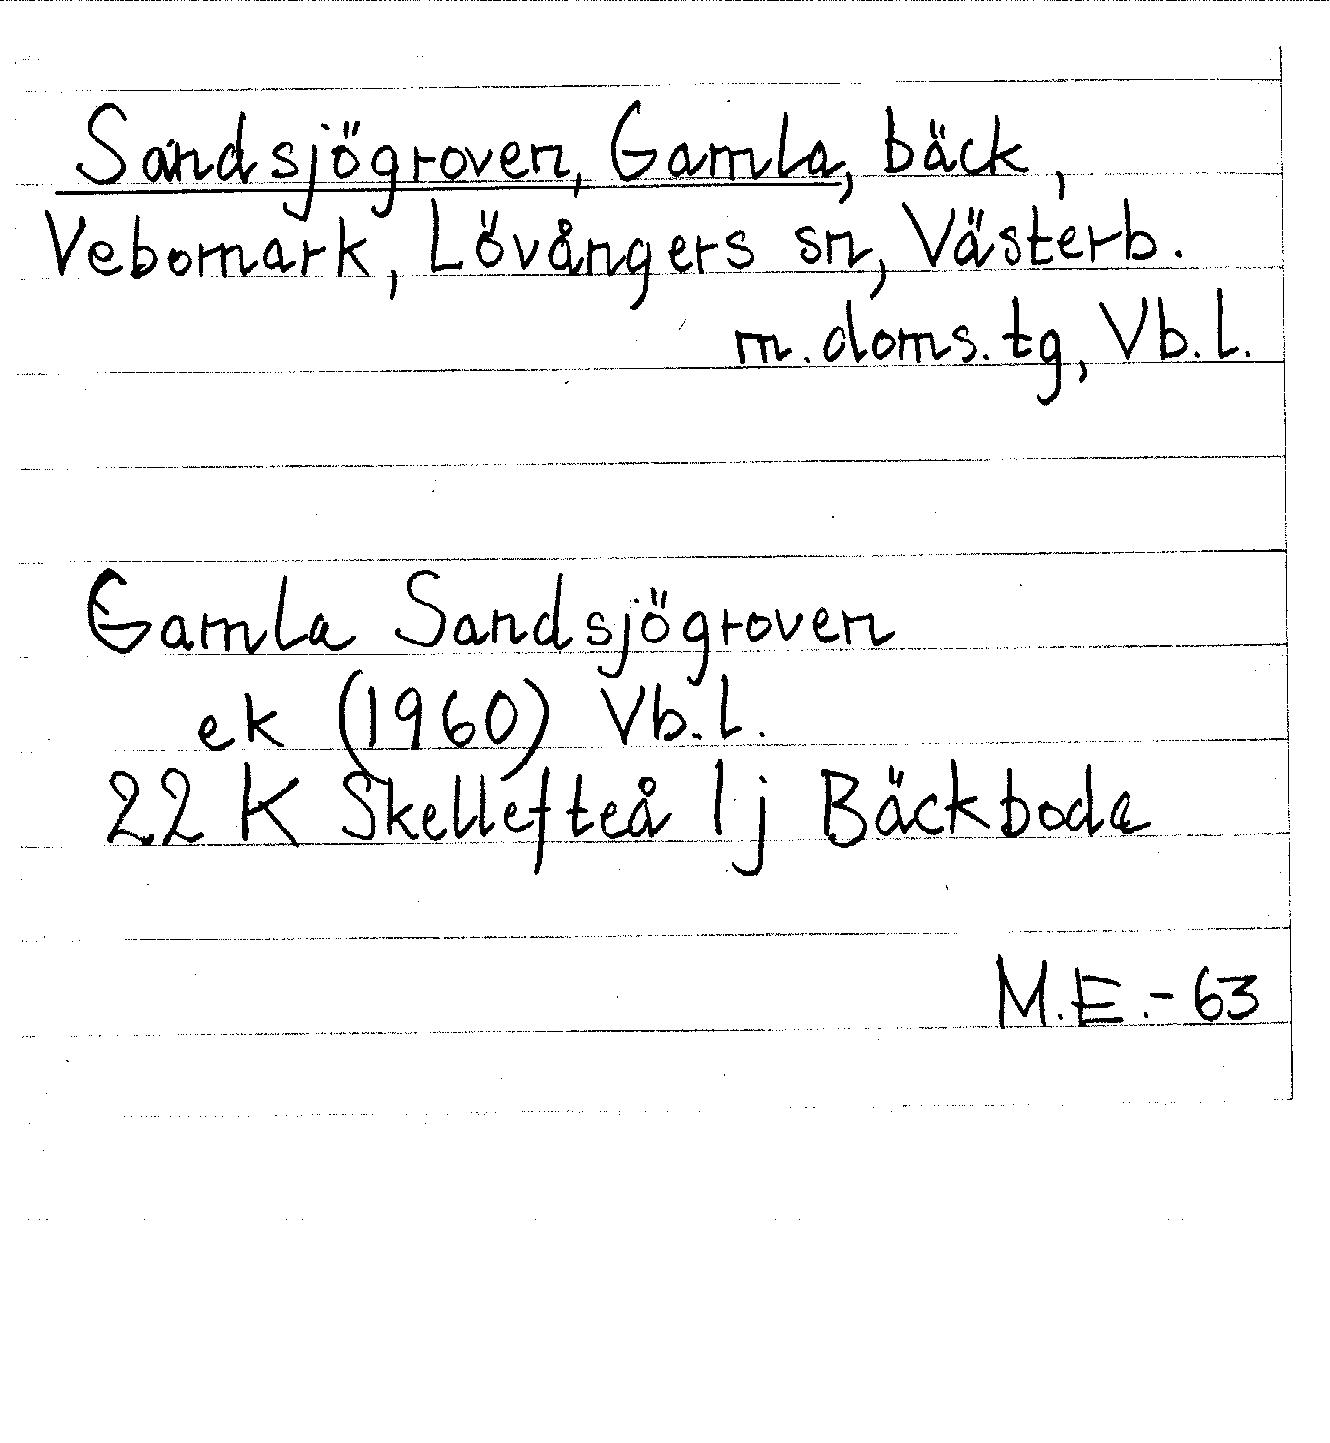 Sandsjögroven, Gamla, bäck,
Vebomark, Lövångers sn, Västerb.
m. doms. tg, Vb. l.
Gamla Sandsjögroven
ek (1960) Vb. l.
22 K Skellefteå 1 j Bäckboda
M.E.-63